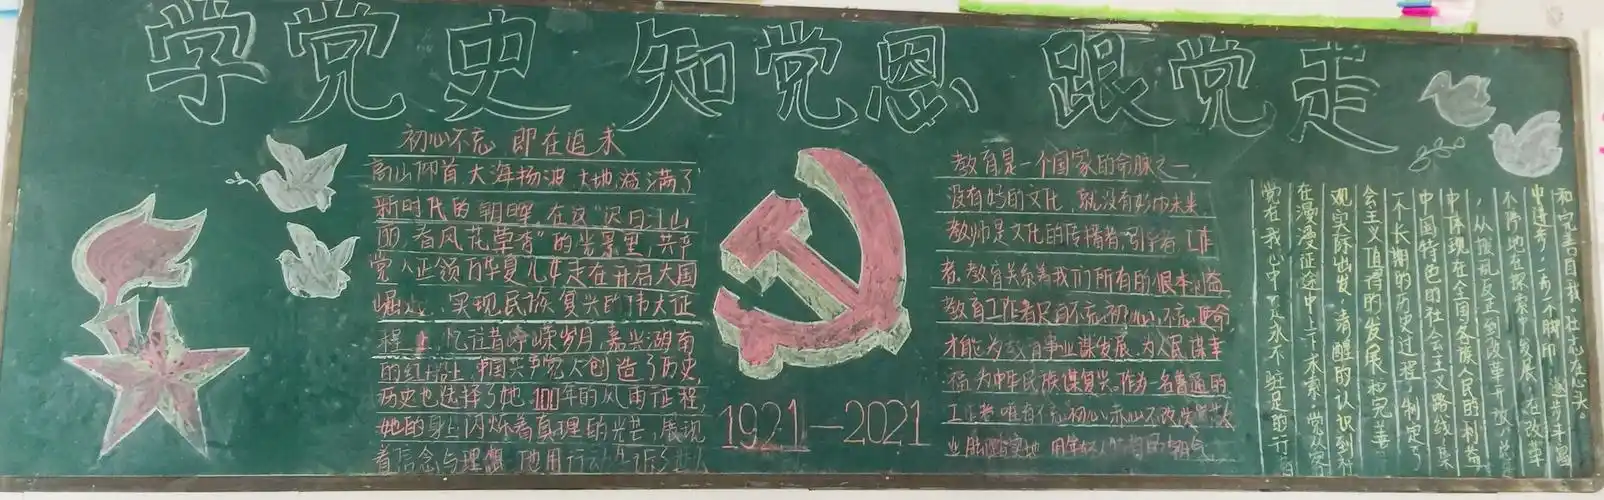 学党史 知党恩 跟党走
初心不忘 即在追求
高山仰首 大海扬波 大地溢满了
新时代的朝晖,在这“迟日江山
丽,春风花草香”的光景里,共产
党人正领百华夏儿女走在开启大国
崛起,实现民族复兴的伟大征
程上,忆往昔峥嵘岁月,嘉兴湖南
的红船上,中国共产党人创造了历史
历史也选择了她,100年的风雨征程,
她的身上闪烁着真理的光芒,展现
着信念与理想 她用行动
1921—2021
教育是一个国家的命脉之一,
没有好的文化,就没有好的未来,
教师是文化的传播者,引学者
者,教育关系着我们所有的根本利益
教育工作者只有不忘初心,不忘使命
才能为教育事业谋发展,为人民谋幸
福,为中华民族谋复兴。作为一名普通的
工作者,唯有
业 脚踏实地 用年轻
和完善自我。壮志在心头。
中进步,一步一个脚印
不停地在探索中发展,在改革
,从拨乱反正到改革开放
中体现在全国各族人民的利益
中国特色的社会主义路线,集
一不长期的历史过程,制定了
会主义值得的发展和完善
观实际出发,清醒的认识到社
在漫漫征途中上下求索,党从客
党在我心中